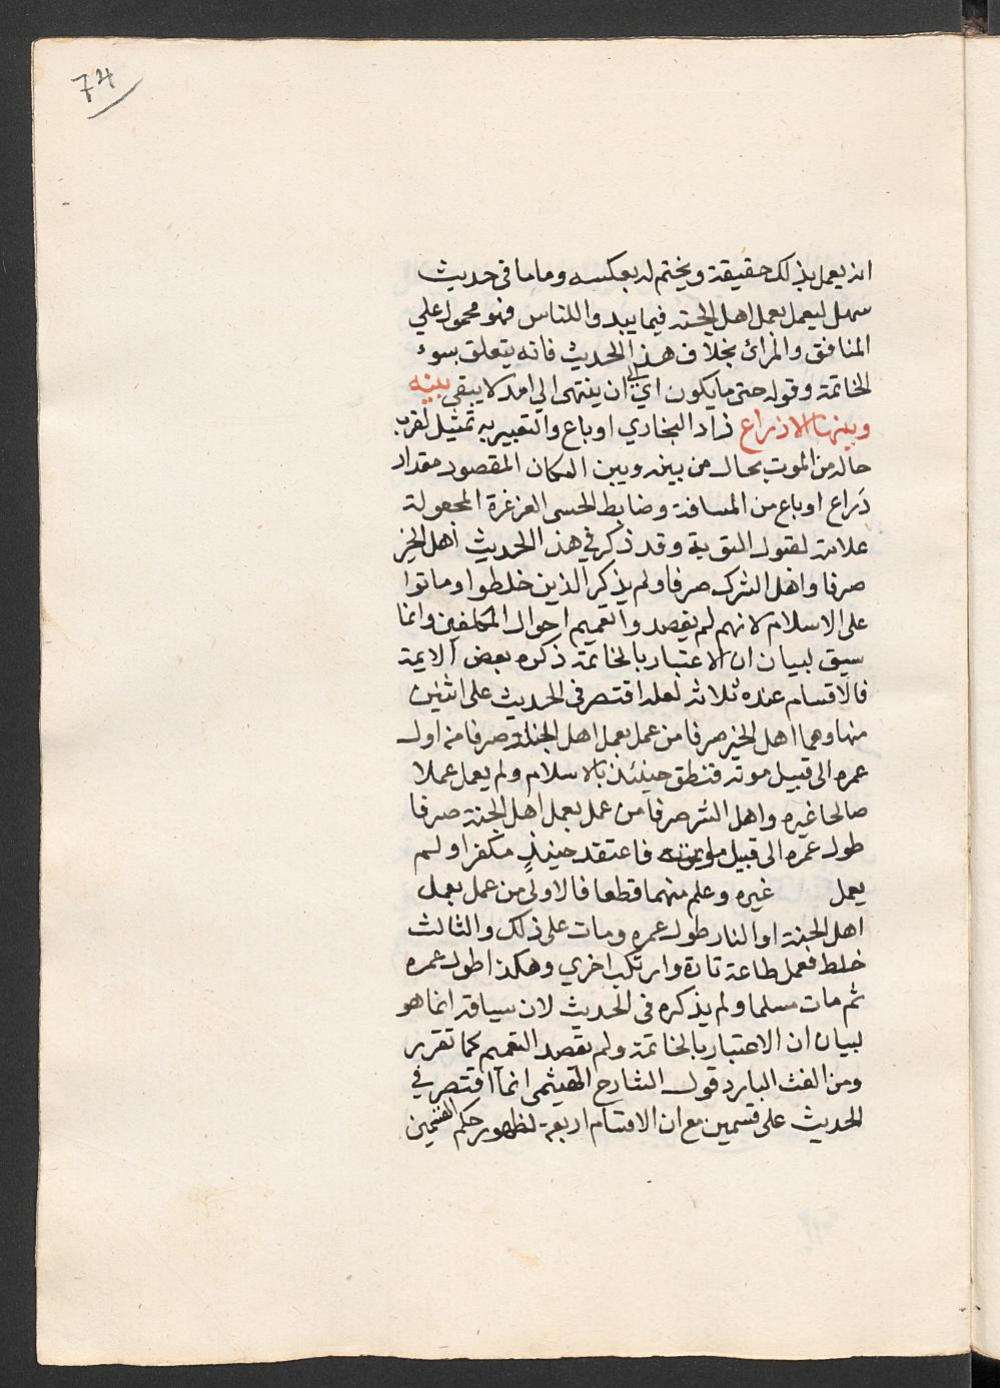 74
انه يعمل بذلك حقيقة ويختم له بعكسه وماما في حديث
سهل ليعمل بعمل اهل الجنة فيما يبدوا للناس فهو محمول علي
المنافق والمرائ بخلاف هذا الحديث فانه يتعلق بسوء
الخاتمة وقوله حتى ما يكون اي الي ان ينتهى الي امد لا يبقي بينه
وبينها الا ذراع زاد البخاري او باع والتعبير به تمثيل لقرب
حاله من الموت بحال من بينه وبين المكان المقصود مقدار
ذراع او باع من المسافة وضابط الحسى الغرغرة المجعولة
علامة لقبول التوبة وقد ذكر في هذا الحديث اهل الخير
صرفا واهل الشرك صرفا ولم يذكر الذين خلطوا وماتوا
على الاسلام لانهم لم يقصدوا تعميم احوال المكلفين وانما
سيق لبيان ان الاعتبار بالخاتمة ذكره بعض الايمة
فالاقسام عنده ثلاثة لعله اقتصر في الحديث على اثنين
منها وهما اهل الخير صرفا من عمل بعمل اهل الجنة صرفا من اول
عمره الى قبيل موته فنطق حينئذ بالاسلام ولم يعمل عملا
صالحا غيره واهل الشر صرفا من عمل بعمل اهل الجنة صرفا
طول عمره الى قبيل موته فاعتقد حينئذ مكفرا ولم
يعمل غيره وعلم منهما قطعا فالاولى من عمل بعمل
اهل الجنة او النار طول عمره ومات على ذلك والثالث
خلط فعمل طاعة تارة وارتكب اخري وهكذا طول عمره
ثم مات مسلما ولم يذكره فى الحديث لان سياقه انما هو
لبيان ان الاعتبار بالخاتمة ولم يقصد التعميم كما تقرر
ومن الغث البارد قول الشارح الهيثمى انما اقتصر في
الحديث على قسمين مع ان الاقسام اربعة لظهور حكم القسمين